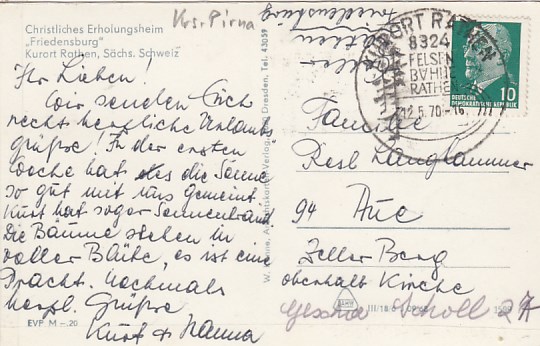 Krs. Pirna
Christliches Erholungsheim
„Friedensburg"
Kurort Rathen, Sächs. Schweiz
Ihr Lieben!
Wir senden Euch
recht herzliche Urlaubs
grüße! In der ersten
Woche hat es die Sonne
so gut mit uns gemeint.
Kurt hat sogar Sonnenbrand
Die Bäume stehen in
voller Blüte, es ist eine
Pracht. Nochmals
herzl. Grüße
Kurt + Hanna
EVP M –.20
Dresden, Tel. 43059
Friedensburg
KURORT RATHEN
8324
FELSEN
BÜHNE
RATHEN
12.5.70-16
10
DEUTSCHE
DEMOKRATISCHE REPUBLIK
Familie
Langhammer
94 Aue
Zeller Berg
oberhalb Kirche
Scholl
III/18/6